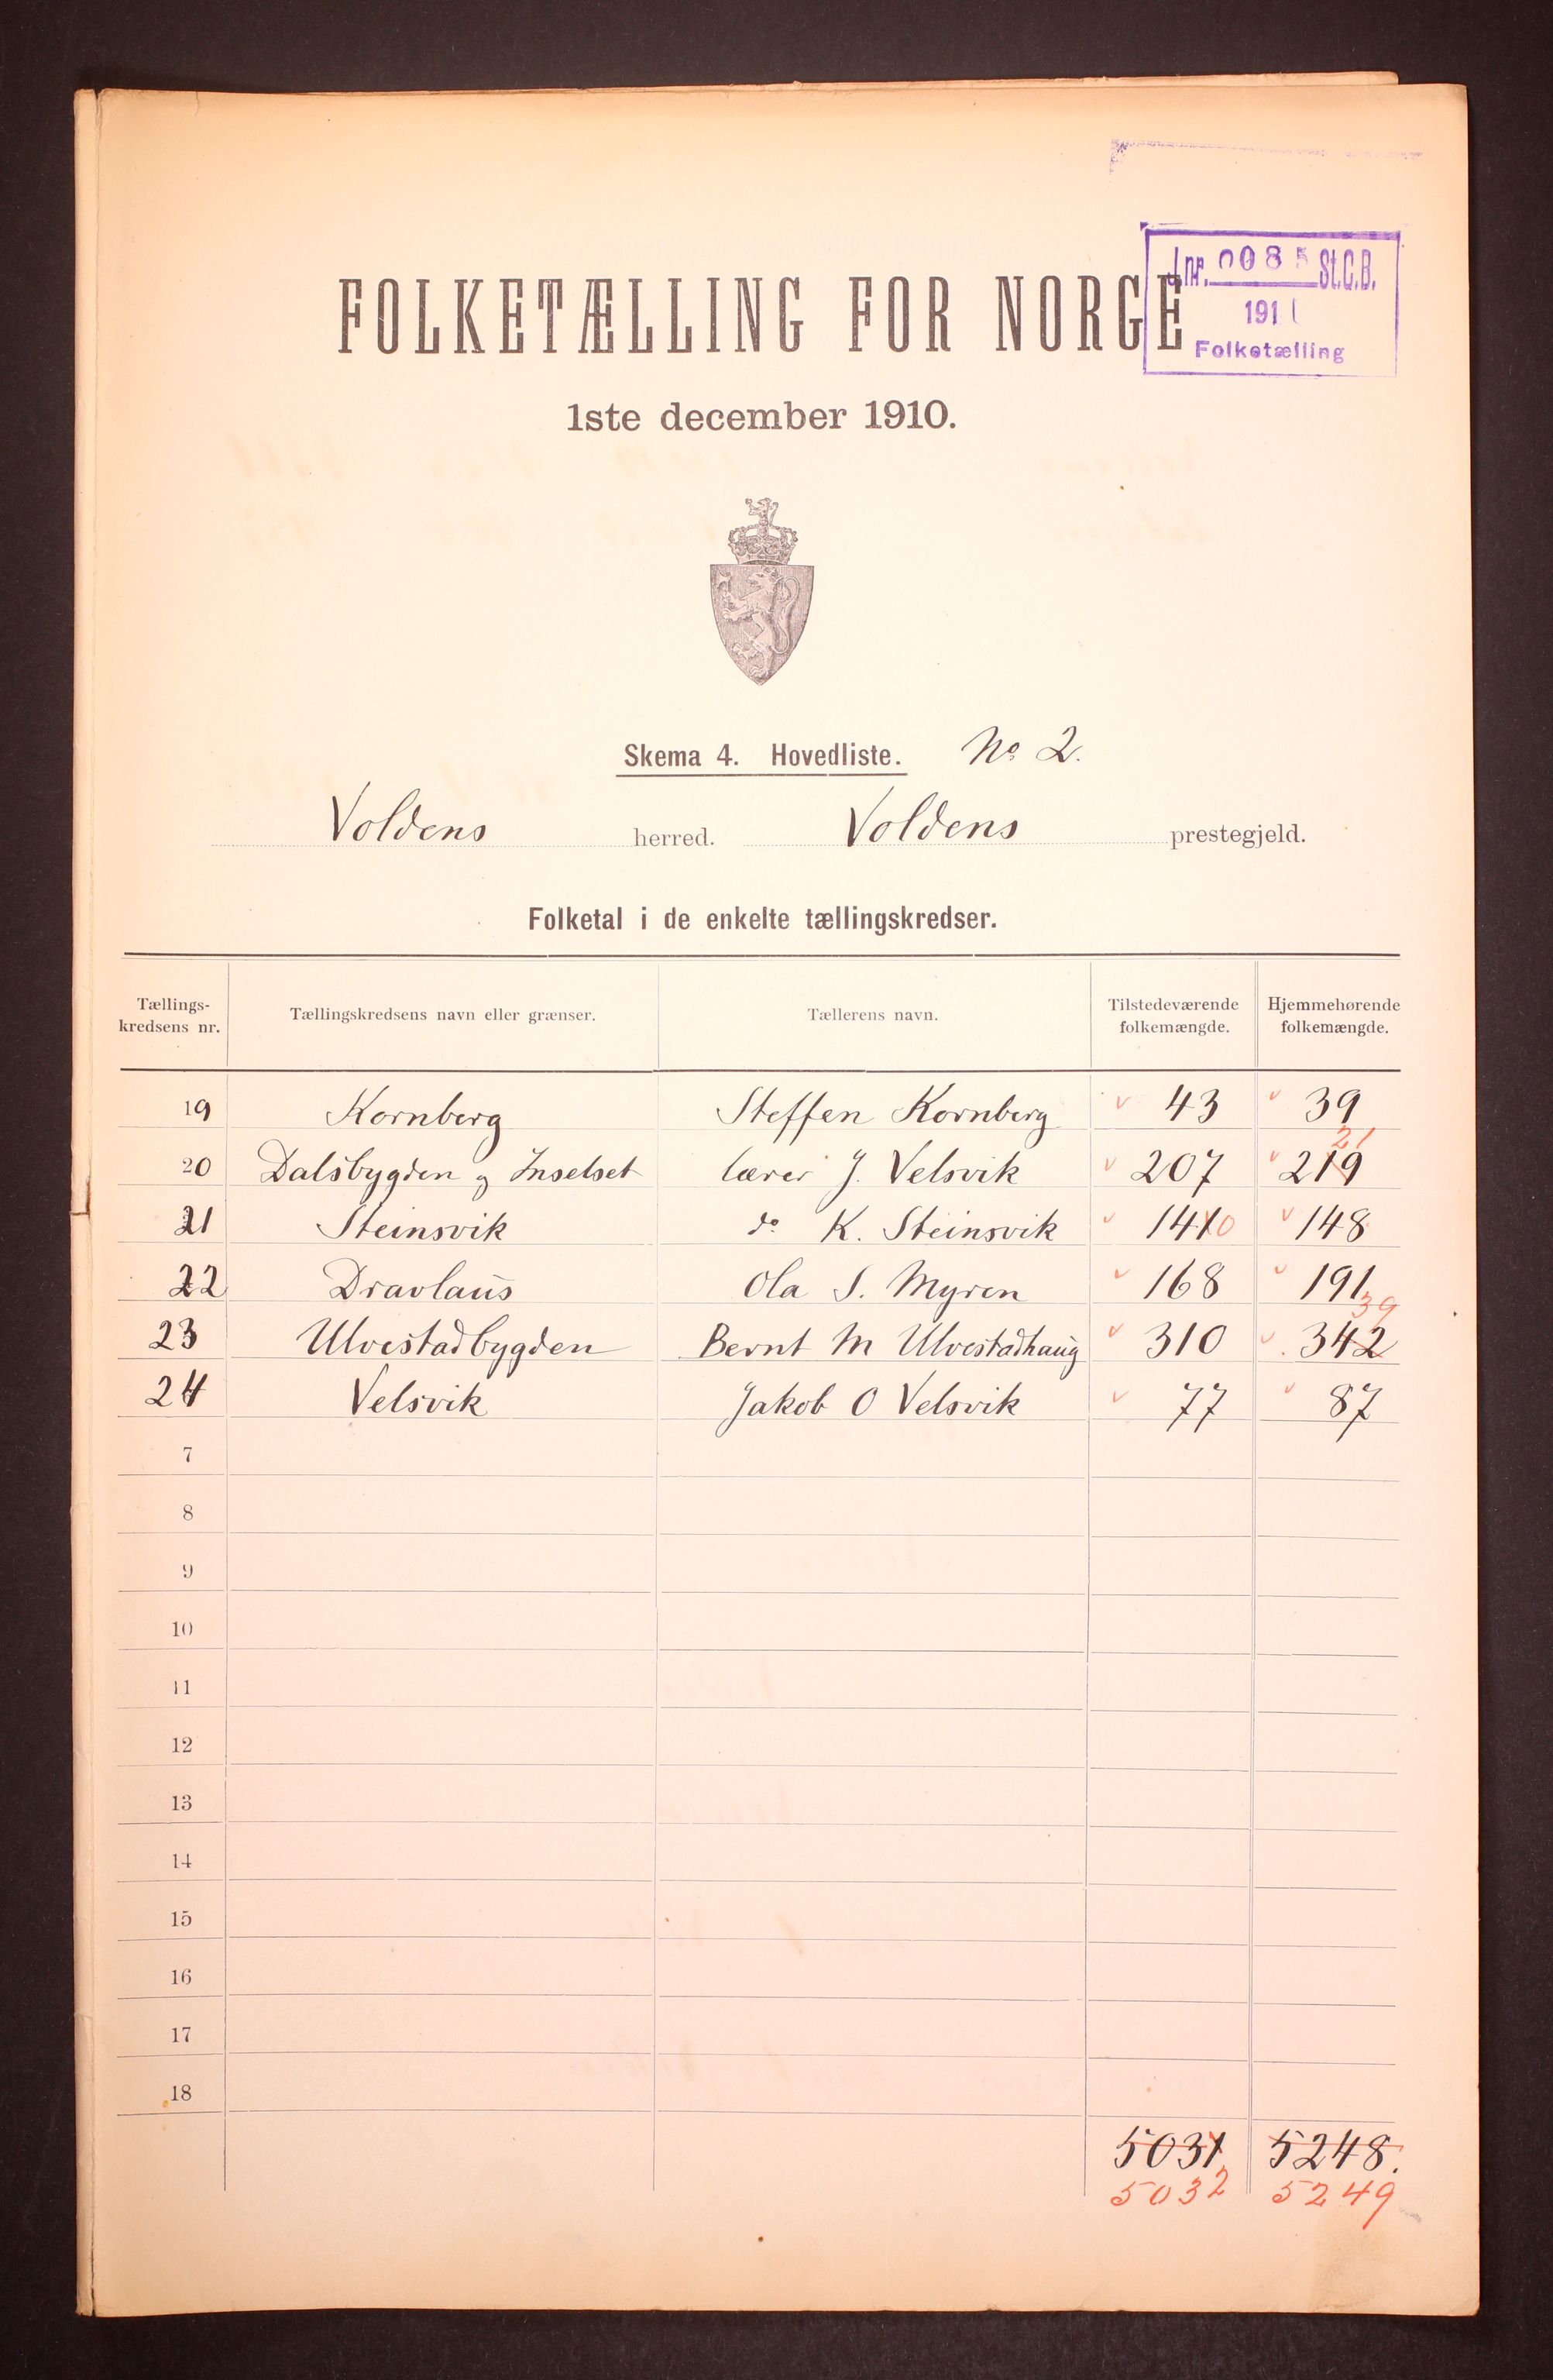 Jnr. 0085 St.C.B.
1911
Folketælling
FOLKETÆLLING FOR NORGE
1ste december 1910.
Skema 4. Hovedliste. No 2.
Voldens herred. Voldens prestegjeld.
Folketal i de enkelte tællingskredser.
Tællings-kredsens nr. Tællingskredsens navn eller grænser. Tællerens navn. Tilstedeværende folkemængde. Hjemmehørende folkemængde.
19 Kornberg Steffen Kornberg v 43 v 39
21
20 Dalsbygden og Inselset lærer J. Velsvik v 207 v 219
21 Steinsvik do K. Steinsvik v 141 0 v 148
22 Dravlaus Ola S. Myren v 168 v 191
39
23 Ulvestadbygden Bernt M Ulvestadhaug v 310 v 342
24 Velsvik Jakob O Velsvik v 77 v 87
7
8
9
10
11
12
13
14
15
16
17
18
5031 5248.
5032 5249